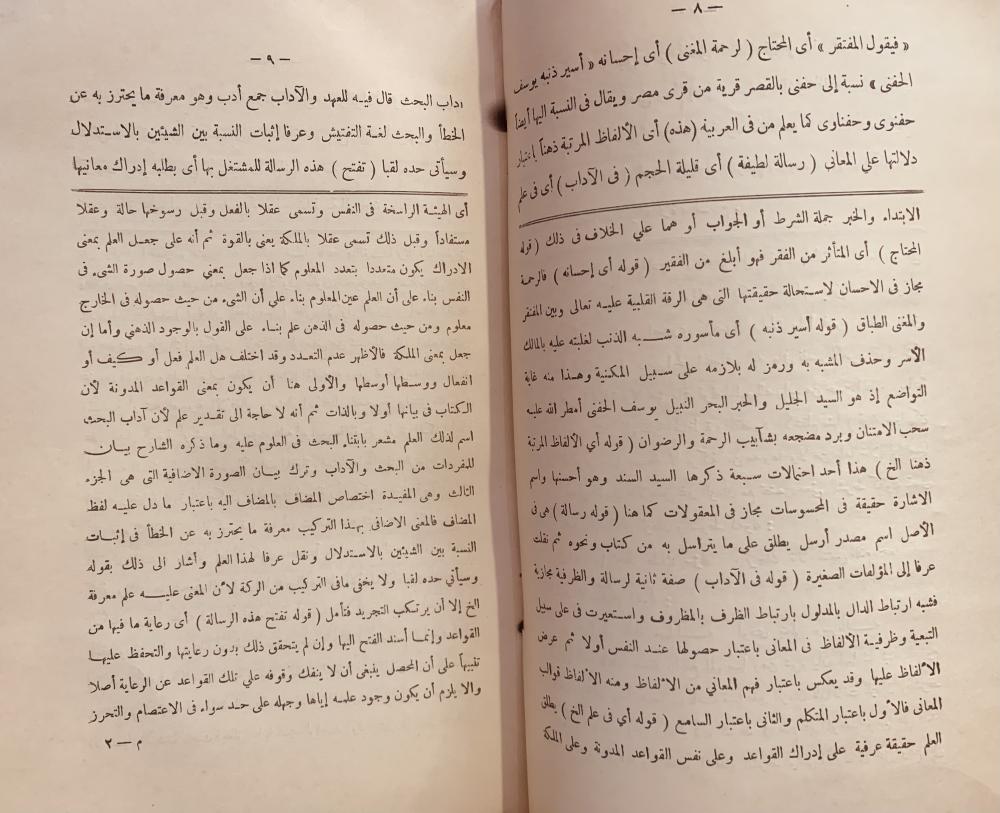 — ٨ —
« فيقول المفتقر » أى المحتاج ( لرحمة المغنى ) أى إحسانه « أسير ذنبه يوسف
الحفنى » نسبة إلى حفنى بالقصر قرية من قرى مصر ويقال فى النسبة اليها أيضاً
حفنوى وحفناوى كما يعلم من فى العربية (هذه) أى الألفاظ المرتبة ذهناً باعتبار
دلالتها علي المعانى ( رسالة لطيفة ) أى قليلة الحجم ( فى الآداب ) أى فى علم
الابتداء والخبر جملة الشرط أو الجواب أو هما علي الخلاف فى ذلك ( قوله
المحتاج ) أى المتأثر من الفقر فهو أبلغ من الفقير ( قوله أى إحسانه ) فالرحمة
مجاز فى الاحسان لاستحالة حقيقتها التى هى الرقة القلبية عليه تعالى وبين المفتقر
والمغنى الطباق ( قوله أسير ذنبه ) أى مأسوره شبه الذنب لغلبته عليه بالمالك
الأسر وحذف المشبه به ورمز له بلازمه على سبيل المكنية وهذا منه غاية
التواضع إذ هو السيد الجليل والحبر البحر النبيل يوسف الحفنى أمطر الله عليه
سحب الامتنان وبرد مضجعه بشآبيب الرحمة والرضوان ( قوله أي الألفاظ المرتبة
ذهنا الخ ) هذا أحد احتمالات سبعة ذكرها السيد السند وهو أحسنها واسم
الاشارة حقيقة فى المحسوسات مجاز فى المعقولات كما هنا ( قوله رسالة ) هى فى
الأصل اسم مصدر أرسل يطلق على ما يتراسل به من كتاب ونحوه ثم نقلت
عرفا إلى المؤلفات الصغيرة ( قوله فى الآداب ) صفة ثانية لرسالة والظرفية مجازية
فشبه ارتباط الدال بالمدلول بارتباط الظرف بالمظروف واستعيرت فى على سبيل
التبعية وظرفية الألفاظ فى المعانى باعتبار حصولها عند النفس أولا ثم عرض
الألفاظ عليها وقد يعكس باعتبار فهم المعاني من الألفاظ ومنه الألفاظ قوالب
المعانى فالأول باعتبار المتكلم والثانى باعتبار السامع ( قوله أي فى علم الخ ) يطلق
العلم حقيقة عرفية على إدراك القواعد وعلى نفس القواعد المدونة وعلى الملكة
— ٩ —
آداب البحث قال فيه للعهد والآداب جمع أدب وهو معرفة ما يحترز به عن
الخطأ والبحث لغة التفتيش وعرفا إثبات النسبة بين الشيئين بالاستدلال
وسيأتى حده لقبا ( تفتح ) هذه الرسالة للمشتغل بها أى بطلبه إدراك معانيها
أى الهيئة الراسخة فى النفس وتسمى عقلا بالفعل وقبل رسوخها حالة وعقلا
مستفاداً وقبل ذلك تسمى عقلا بالملكة يعنى بالقوة ثم أنه على جعل العلم بمعنى
الادراك يكون متعددا بتعدد المعلوم كما اذا جعل بمعني حصول صورة الشىء فى
النفس بناء على أن العلم عين المعلوم بناء على أن الشىء من حيث حصوله فى الخارج
معلوم ومن حيث حصوله فى الذهن علم بناء على القول بالوجود الذهني وأما إن
جعل بمعنى الملكة فالأظهر عدم التعدد وقد اختلف هل العلم فعل أو كيف أو
انفعال ووسطها أوسطها والأولى هنا أن يكون بمعنى القواعد المدونة لأن
الكتاب فى بيانها أولا وبالذات ثم أنه لا حاجة الى تقدير علم لأن آداب البحث
اسم لذلك العلم مشعر بابتناء البحث فى العلوم عليه وما ذكره الشارح بيان
للمفردات من البحث والآداب وترك بيان الصورة الاضافية التى هى الجزء
الثالث وهى المفيدة اختصاص المضاف بالمضاف اليه باعتبار ما دل عليه لفظ
المضاف فالمعنى الاضافى بهذا التركيب معرفة ما يحترز به عن الخطأ فى إثبات
النسبة بين الشيئين بالاستدلال ونقل عرفا لهذا العلم وأشار الى ذلك بقوله
وسيأتي حده لقبا ولا يخفى مافى التركيب من الركة لأن المعنى عليه علم معرفة
الخ إلا أن يرتكب التجريد فتأمل ( قوله تفتح هذه الرسالة ) أى رعاية ما فيها من
القواعد وإنما أسند الفتح اليها وإن لم يتحقق ذلك بدون رعايتها والتحفظ عليها
تنبيهاً على أن المحصل ينبغى أن لا ينفك وقوفه علي تلك القواعد عن الرعاية أصلا
والا يلزم أن يكون وجود علمه إياها وجهله على حد سواء فى الاعتصام والتحرز
م — ٢